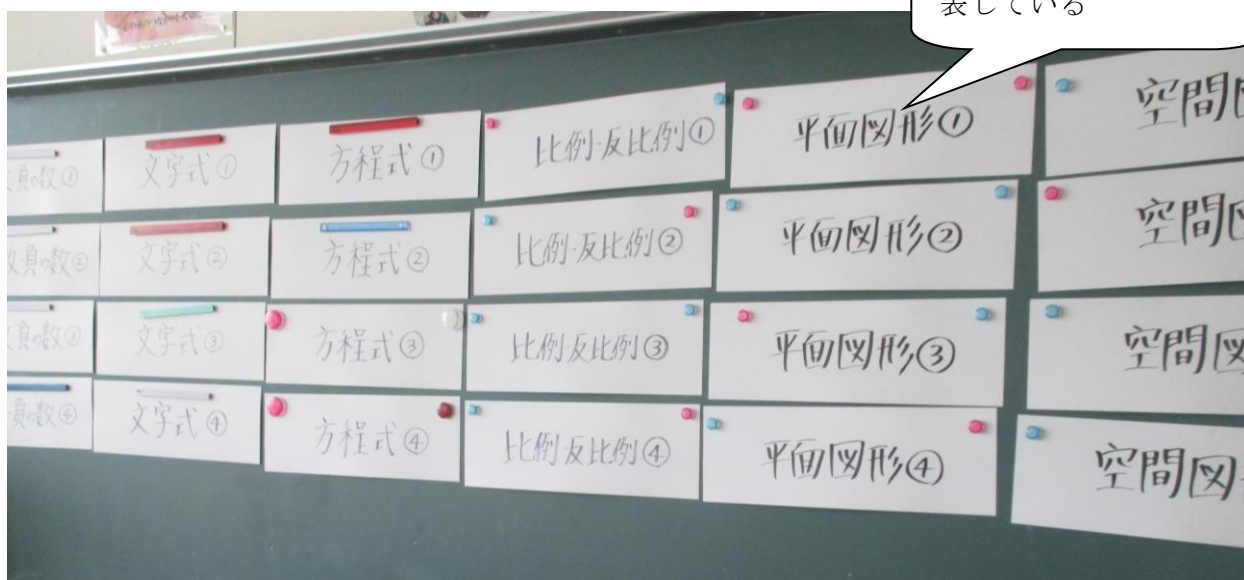 表している
負の数①
文字式①
方程式①
比例・反比例①
平面図形①
空間図
負の数②
文字式②
方程式②
比例・反比例②
平面図形②
空間図
負の数③
文字式③
方程式③
比例・反比例③
平面図形③
空間図
負の数④
文字式④
方程式④
比例・反比例④
平面図形④
空間図